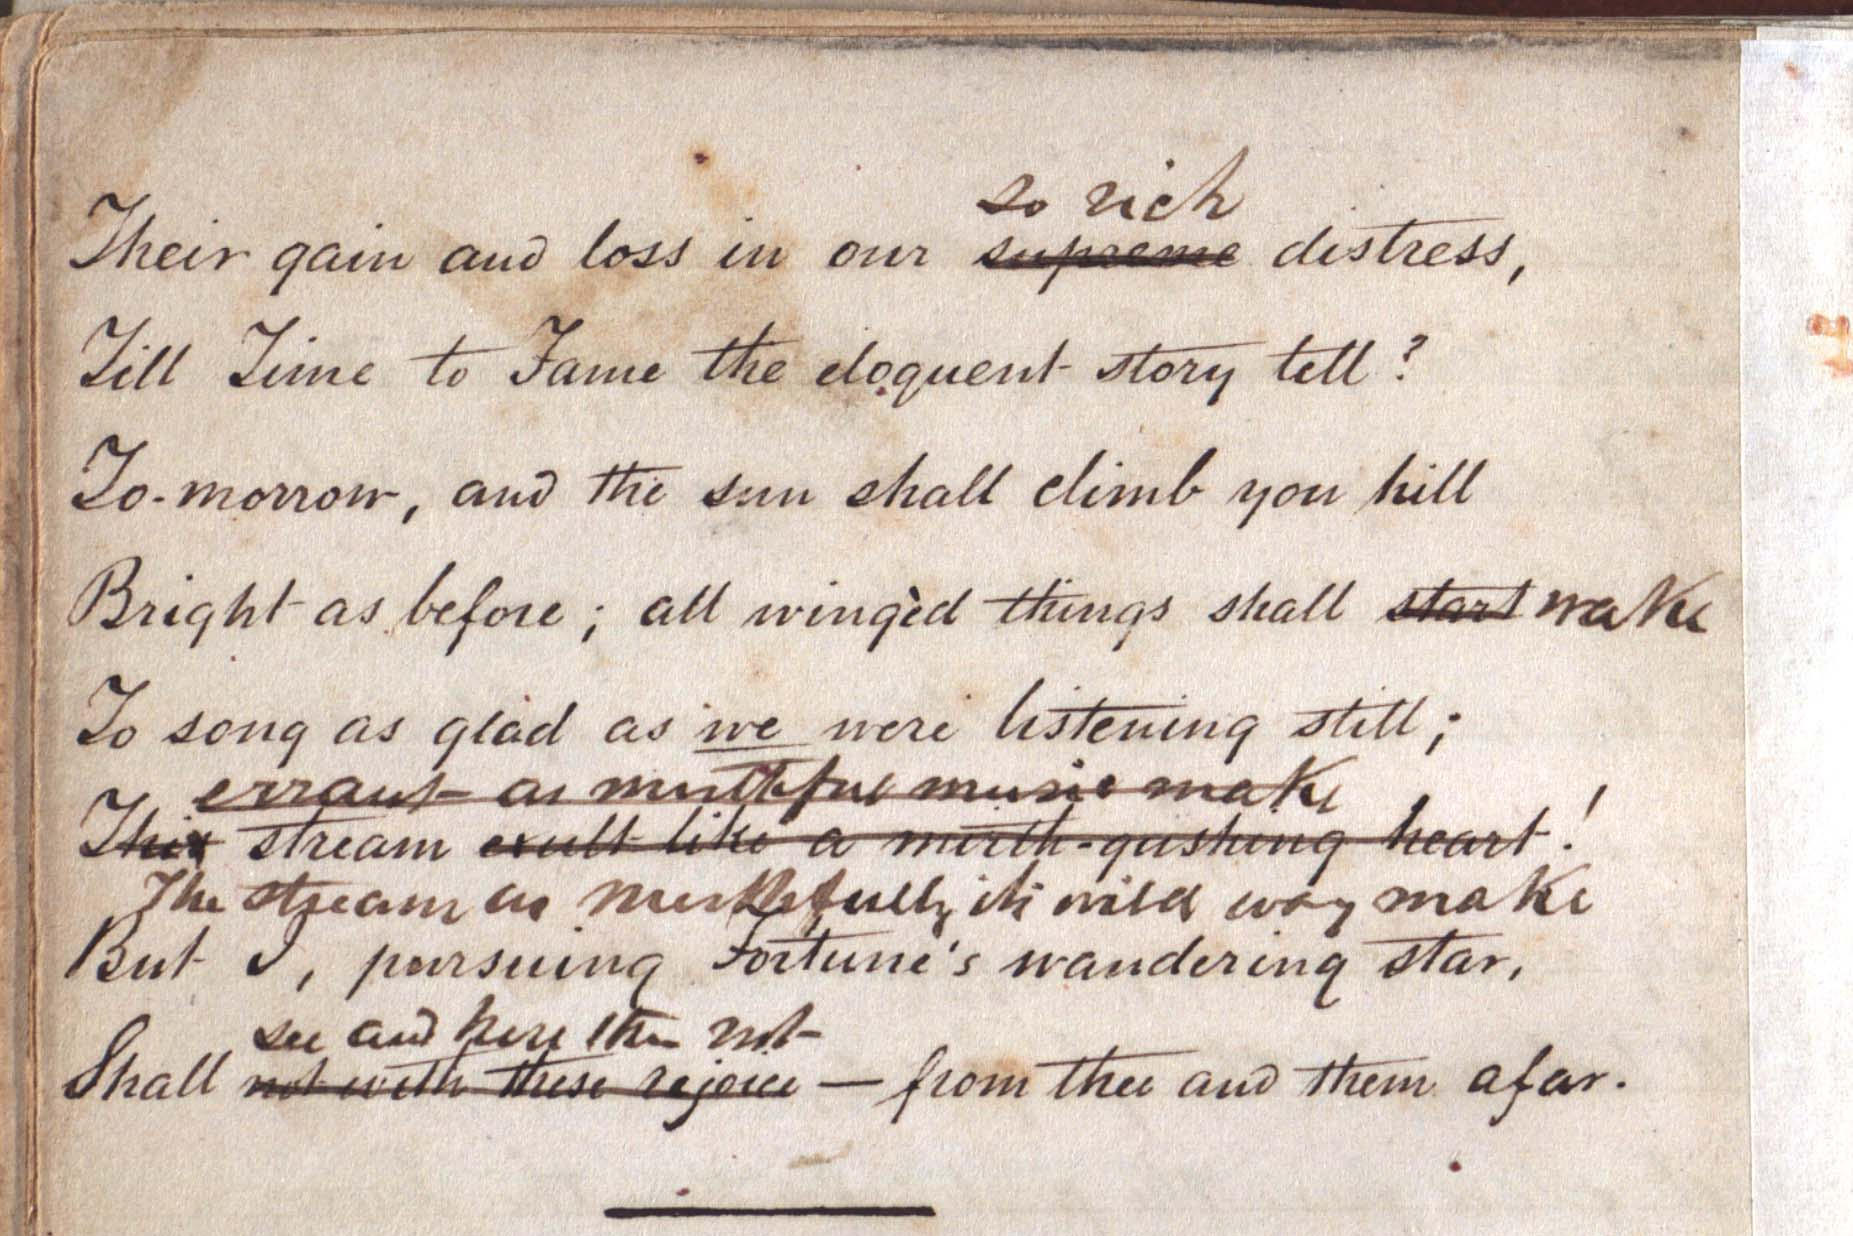 so rich
Their gain and loss in our supreme distress,
Till Time to Fame the eloquent story tell?
To-morrow, and the sun shall climb you hill
Bright as before; all wingèd things shall start wake
To song as glad as we were listening still;
errant as mirthful music make
This stream exult like a mirth-gushing heart!
The stream as mirthfully its wild way make
But I, pursuing Fortune's wandering star,
see and hear then not
Shall not with these rejoice — from thee and them afar.